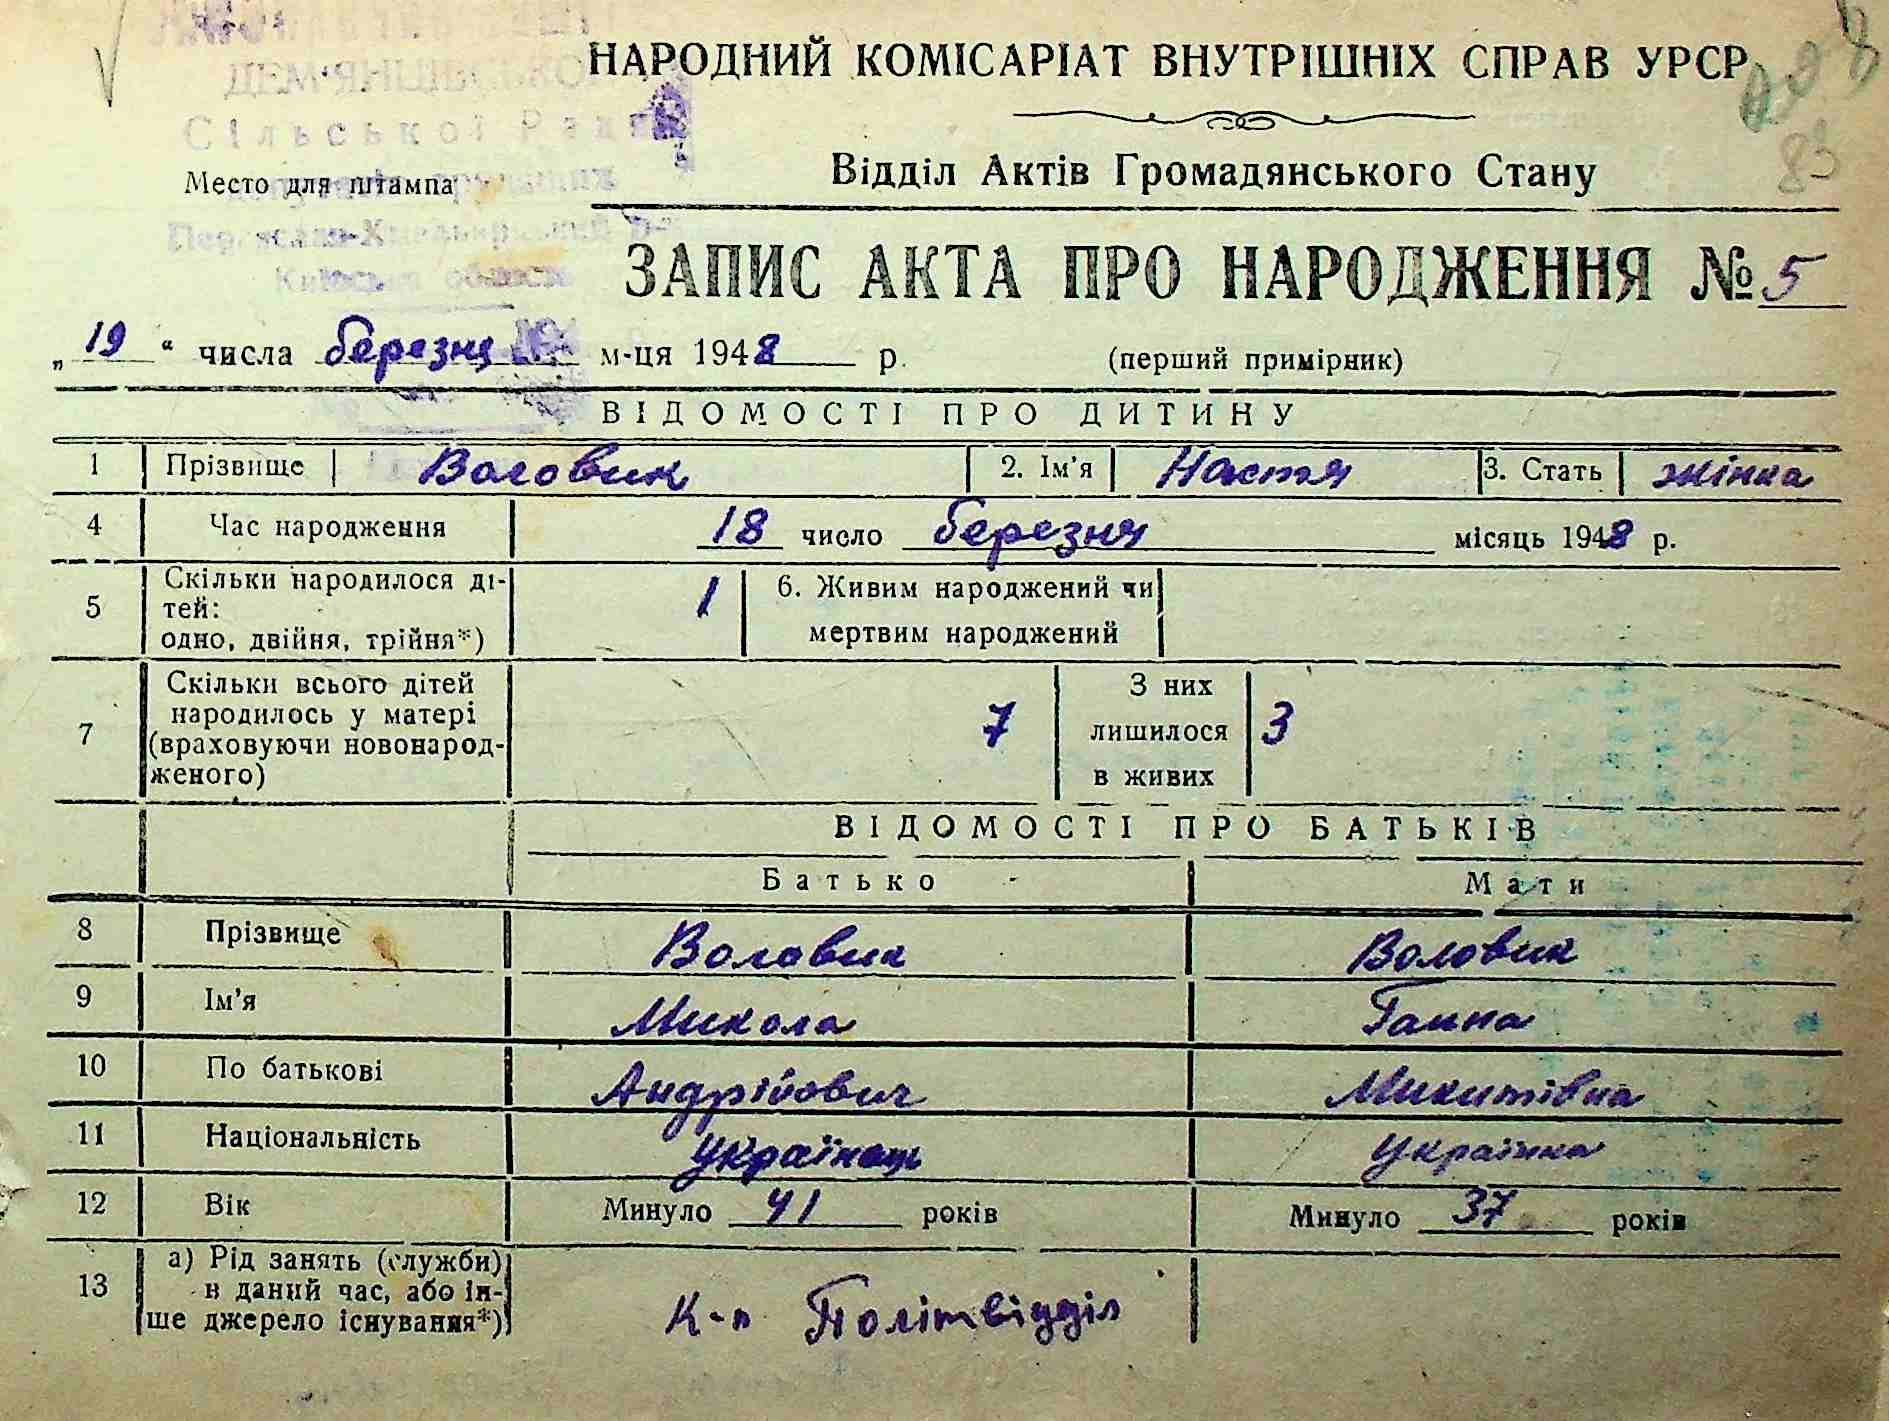 ДЕМ'ЯНЦІВСЬКОЇ
Сільської Ради
НАРОДНИЙ КОМІСАРІАТ ВНУТРІШНІХ СПРАВ УРСР
83
Відділ Актів Громадянського Стану
Место для штампа
Київської області
ЗАПИС АКТА ПРО НАРОДЖЕННЯ № 5
„19“ числа березня м-ця 1948 р. (перший примірник)
ВІДОМОСТІ ПРО ДИТИНУ
1 Прізвище Воловик 2. Ім'я Настя 3. Стать жінка
4 Час народження 18 число березня місяць 1948 р.
5 Скільки народилося ді-
тей:
одно, двійня, трійня*) 1 6. Живим народжений чи
мертвим народжений
7 Скільки всього дітей
народилось у матері
(враховуючи новонарод-
женого) 7 З них
лишилося
в живих 3
ВІДОМОСТІ ПРО БАТЬКІВ
Батько Мати
8 Прізвище Воловик Воловик
9 Ім'я Микола Ганна
10 По батькові Андрійович Микитівна
11 Національність Українець Українка
12 Вік Минуло 41 років Минуло 37 років
13 а) Рід занять (служби)
в даний час, або ін-
ше джерело існування*) К-п Політвідділ